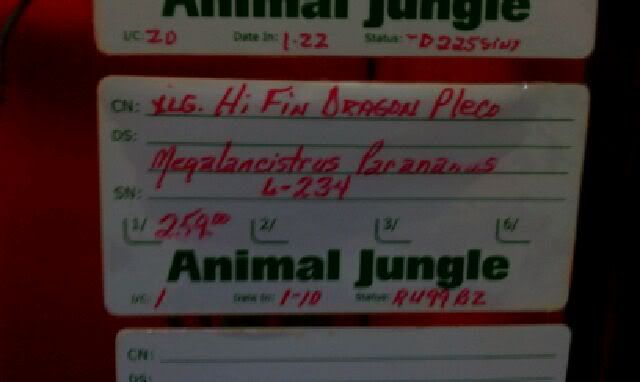 Animal Jungle
I/C: 20 Date In: 1-22 Status:
CN: XLG. Hi Fin Dragon Pleco
DS:
Megalancistrus Parananus
SN: L-234
1/ 259.00 2/ 3/ 6/
Animal Jungle
I/C: 1 Date In: 1-10 Status: R499BZ
CN:
DS: